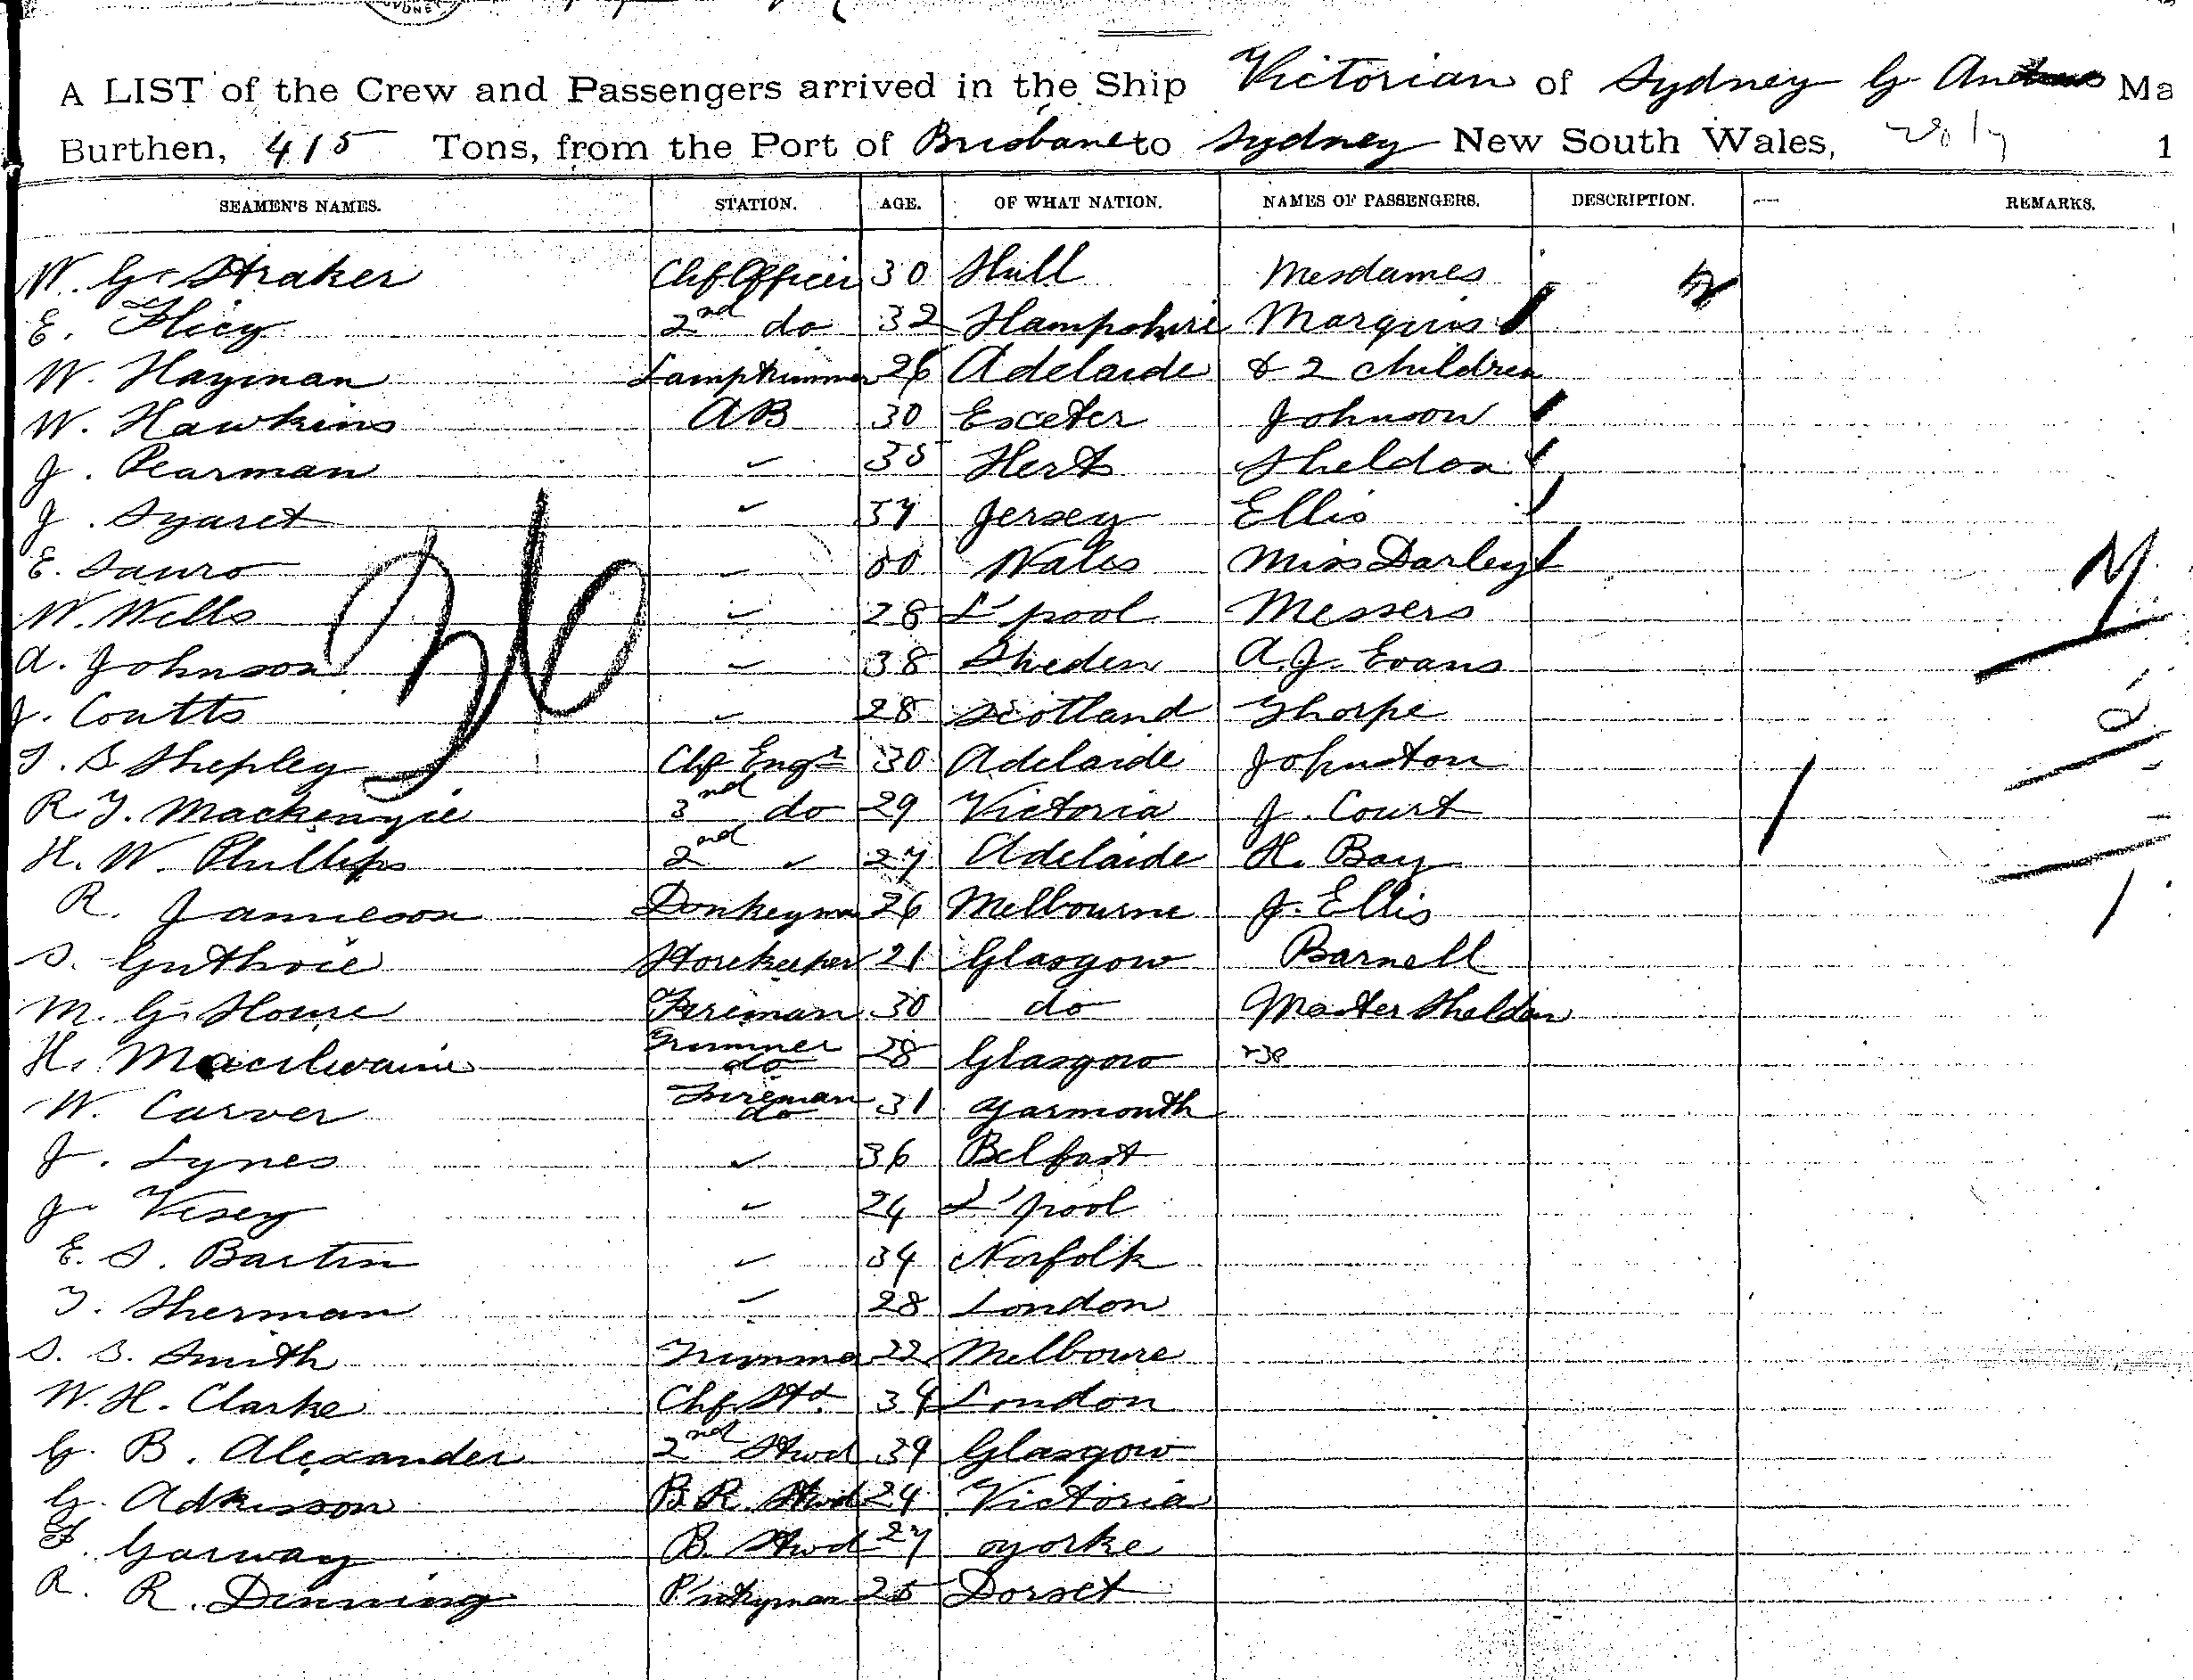 A LIST of the Crew and Passengers arrived in the Ship Victorian of Sydney G Ma
Burthen, 415 Tons, from the Port of Brisbane to Sydney New South Wales, 1
SEAMEN'S NAMES. STATION. AGE. OF WHAT NATION. NAMES OF PASSENGERS. DESCRIPTION. REMARKS.
W. G. Straker Chf Officer 30 Hull Mesdames
E. 2nd do 32 Hampshire Marquis
W. Hayman Lamptrimmer 26 Adelaide & 2 children
W. Hawkins AB 30 Exceter Johnson
J. Pearman 35 Herts Sheldon
J. Syaret 37 Jersey Ellis
E. Wales Miss Darley
W. Wells 28 L'pool Messers
A. Johnson 38 Sweden A. J. Evans
J. Coutts 28 Scotland Thorpe
T. S. Shepley Chf Engr 30 Adelaide Johnston
R. J. Mackenzie 3nd do 29 Victoria J. Court
H. W. Phillips 2nd 27 Adelaide H. Bay
R. Jamieson Donkeyman 26 Melbourne J. Ellis
S. Guthrie Storekeeper 21 Glasgow Barnell
M. G. Howe Fireman 30 do Master Sheldon
H. Macilwaine Trimmer do 28 Glasgow
W. Carver Fireman do 31 Yarmouth
J. Lynes 36 Belfast
J. Visey 24 L'pool
E. S. Bartin 34 Norfolk
T. Sherman 28 London
S. S. Smith Trimmer 22 Melboure
W. H. Clarke Chf Std 34 London
G. B. Alexander 2nd Stwd 39 Glasgow
G. Adkisson B. R. Stwd 24 Victoria
F. Garway B. Stwd 27 Yorke
R. R. Denning P'ntryman 25 Dorset